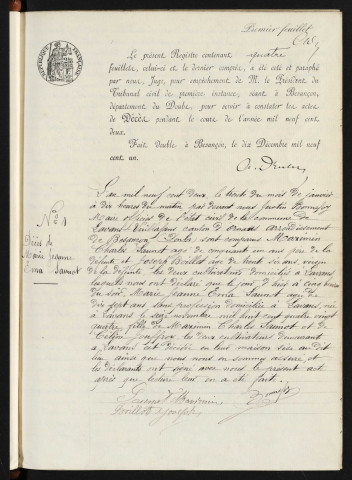 Premier feuillet
RÉPUBLIQUE FRANÇAISE
Le présent Registre contenant quatre
feuillets, celui-ci et le dernier compris, a été coté et paraphé
par nous, Juge, pour empêchement de M. le Président du
Tribunal civil de première instance, séant à Besançon,
département du Doubs, pour servir à constater les actes
de Décès pendant le cours de l'année mil neuf cent
deux.
Fait double à Besançon, le dix Décembre mil neuf
cent un.
No 1
Décès de
Marie Jeanne
Irma Saunot
L'an mil neuf cent deux, le trente du mois de janvier
à dix heures du matin par devant nous Justin Bonnefoy
Maire officier de l'état civil de la commune de
Lavans canton d' arrondissement
de Besançon Doubs, sont comparus Maximin
Charles Saunot agé de cinquante un ans père de la
défunte et Joseph agé de trente six ans, voisin
de la défunte, les deux cultivateurs domiciliés à Lavans
lesquels nous ont déclaré que le jour d'hier à cinq heures
du soir, Marie Jeanne Irma Saunot, agée de
dix sept ans, sans profession domiciliée à Lavans, née
à Lavans le novembre mil huit cent quatre vingt
quatre, fille de Maximin Charles Saunot et de
Céline Jouffroy les deux cultivateurs demeurant
à Lavans est décédée en leur maison sise au dit
lieu, ainsi que nous nous en sommes assuré et
les déclarants ont signé avec nous le présent acte
après que lecture leur en a été faite.
Saunot Maximin
Joseph